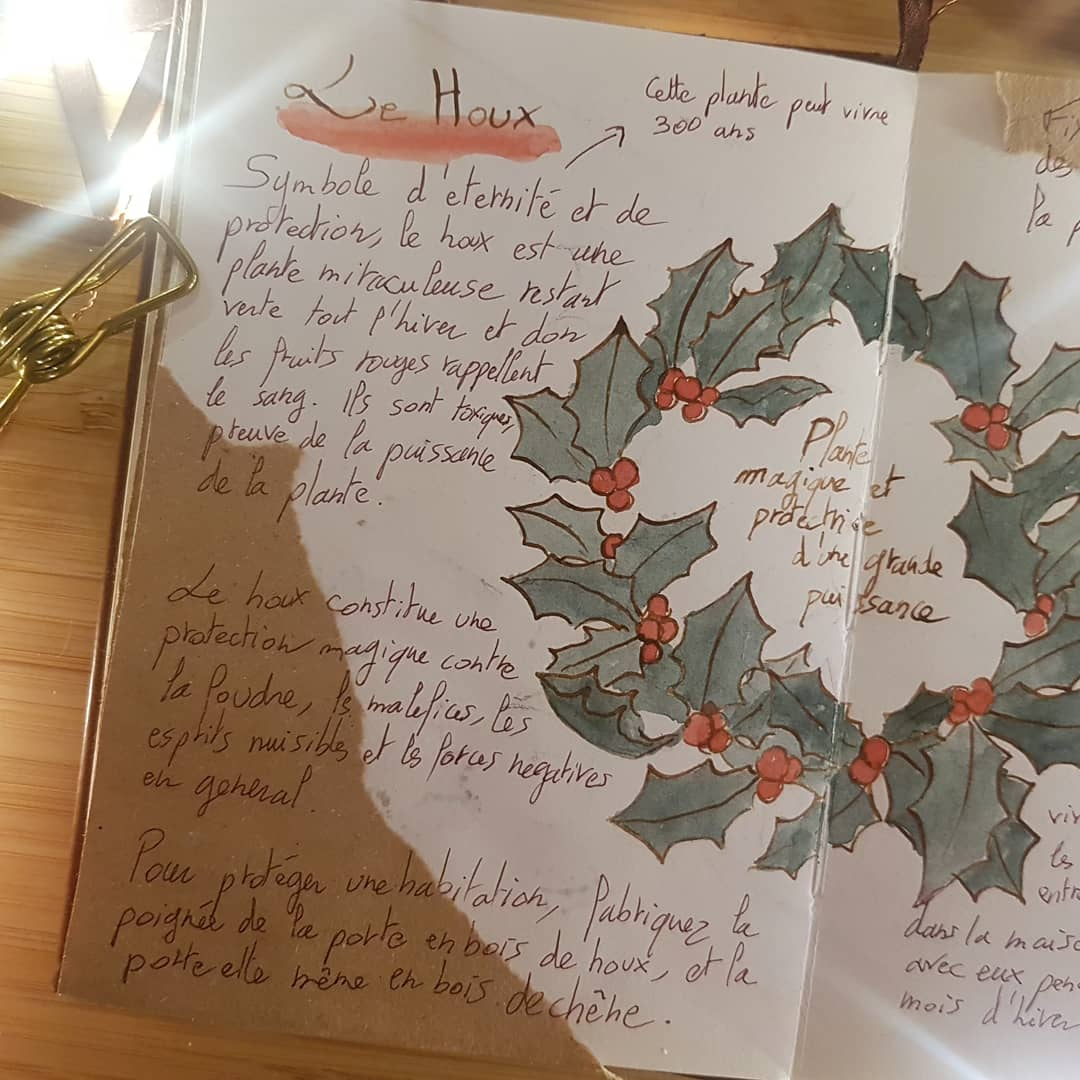 Le Houx
Cette plante peut vivre
300 ans
Symbole d'éternité et de
protection, le houx est une
plante miraculeuse restant
verte tout l'hiver et don
les fruits rouges rappellent
le sang. Ils sont toxiques,
preuve de la puissance
de la plante.
Le houx constitue une
protection magique contre
la foudre, les malefices, les
esprits nuisibles et les forces negatives
en general.
Pour protéger une habitation, fabriquez la
poignée de la porte en bois de houx, et la
porte elle même en bois de chêne.
Plante
magique et
protectrice
d'une grande
puissance
Fix
des
la p
viv
les
entr
dans la maiso
avec eux pen
mois d'hiver